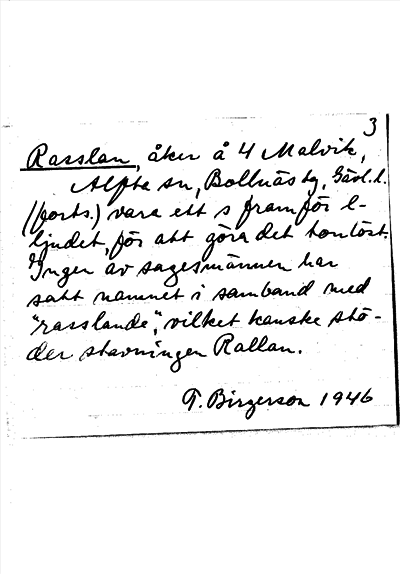 3
Rasslan, åker å 4 Malvik,
Alfta sn, Bollnäs tg, Gävl. l.
(forts.) vara ett s framför l-
ljudet, för att göra det tonlöst.
Ingen av sagesmännen har
satt namnet i samband med
"rasslande", vilket kanske stö-
der stavningen Rallan.
T. Birgerson 1946